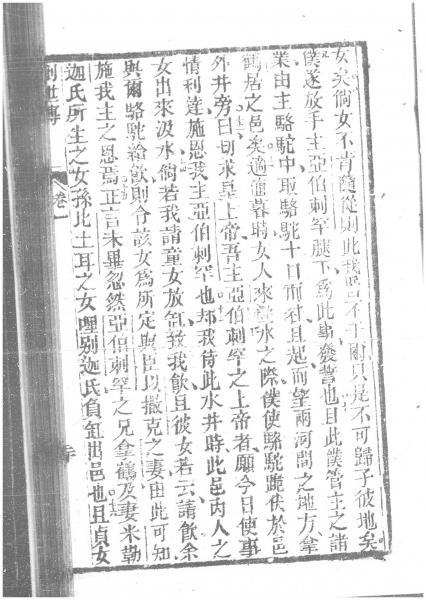 女矣倘女不肯隨從則此我誓不干爾只是不可歸子彼地矣
僕遂放手主亞伯剌罕腿下為此事發誓也且此僕管主之諸
業由主駱駝中取駱駝十口而往且起而望兩河間之地方拿
鶴居之邑矣適值暮時女人來汲水之際僕使駱駝跪伏於邑
外井旁曰切求皇上帝吾主亞伯剌罕之上帝者願今日使事
情利達施恩我主亞伯剌罕也却我待此水井時此邑內人之
女出來汲水倘若我請童女放缸給我飲且彼女若云請飲余
與爾駱駝給飲則今該女為所定與臣以撒克之妻由此可知
施我主之恩焉正言未畢忽然亞伯剌罕之兄拿鶴及妻米勒
迦氏所生之女孫比土耳之女哩別迦氏負缸出邑也且貞女
創世傳 卷一